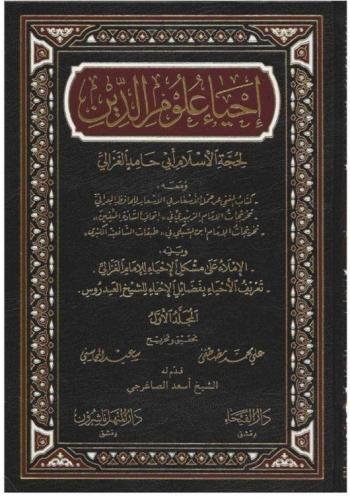 إحياء علوم الدين
لحجة الإسلام أبي حامد الغزالي
ومعه
- كتاب المغني عن حمل الأسفار في الأسفار للحافظ العراقي
- تخريجات الإمام الزبيدي في «إتحاف السادة المتقين»
- تخريجات الإمام ابن السبكي في «طبقات الشافعية الكبرى»
ويليه
- الإملاء على مشكل الإحياء للإمام الغزالي.
- تعريف الأحياء بفضائل الإحياء للشيخ العيدروس.
المجلد الأول
تحقيق وتخريج
علي محمد مصطفى سعيد المحاسني
قدم له
الشيخ أسعد الصاغرجي
دار الفيحاء دار المنهل ناشرون
دمشق دمشق